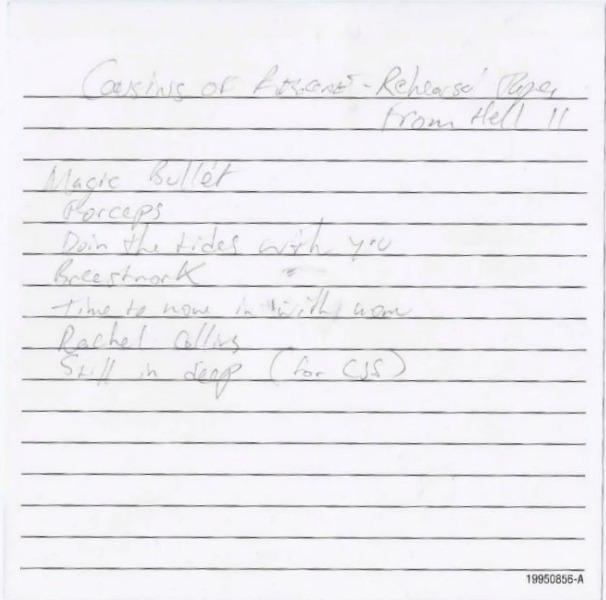 Cousins of - Rehearsal Tapes
From Hell II
Magic Bullet
Forceps
Doin the tides with you
Time to in with
Rachel Collins
Still in deep (for CSS)
19950856-A